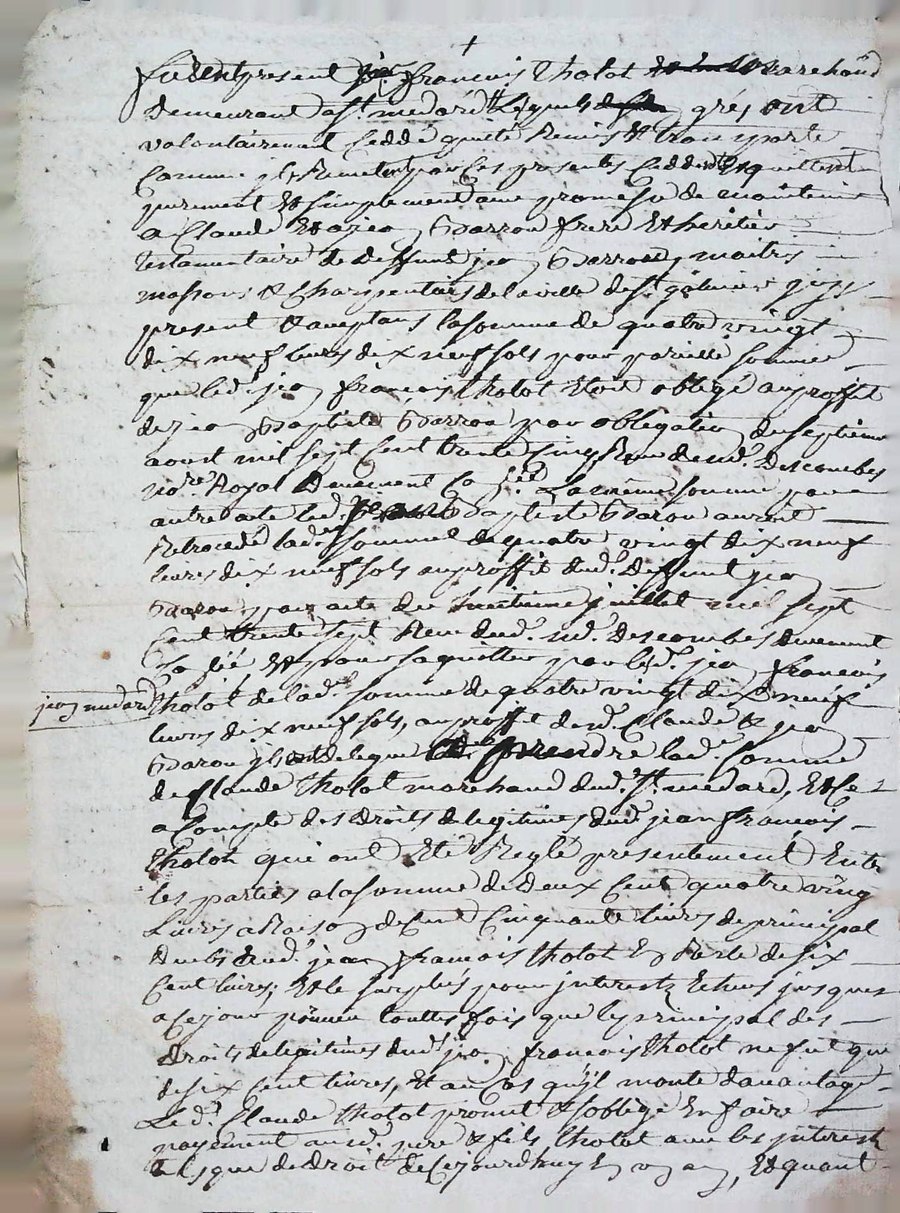 +
furent present jean françois Tholot marchand
demeurant a st. medard lequels grés, ont
volontairement ceddé quitté Remis et transporté
Comme ils Remetent par ces presentes Ceddent Et quittent
purement Et simplement avec promesse de maintenir
a Claude Et à jean Barrou frere Et heritier
testamentaire de deffunt jean Barrou, maitres
massons & charpentiers de la ville de st. galmier jcy
present & aceptans la somme de quatre vingt
dix neuf livres dix neuf sols pour pareille somme
que led. jean françois Tholot Etoit obligé au proffit
de jean Baptiste Barrou par obligation du septieme
aoust mil sept cent trente cinq Reçue dud. md. Descombes
no.re Royal Deuement Co lée La meme somme par
autre acte led. Baptiste Barou auroit
Retrocedé lad. somme de quatre vingt dix neuf
livres dix neuf sols au proffit dud. Deffunt jean
Barou par acte du huitieme juillet mil sept
Cent trente sept Reçu dud. md. Descombes deuement
Co lée, Et pour s'aquitter par led. jean françois
jean medard Tholot de lad. somme de quatre vingt dix neuf
livres dix neuf sols, au proffit desd. Claude & jean
Barou ils ont delegué prendre lad. somme
de Claude Tholot marchand dud. St. medard, Et Ce
a Compte des droits de legitimes dud. jean francois
Tholot qui ont Eté Reglé presentement Entre
les parties a la somme de Deux Cent quatre ving
Livres a Raison de Cent Cinquante livres de principal
dud. jean francois Tholot En Reste de six
Cent livres; Et le surplus pour interest Echus jusques
a Ce jour pourvu touttes fois que le principal des
droits de legitimes dud. jean françois Tholot ne fut que
de six cent livres, Et au Cas qu'il monte davantage
Led. Claude Tholot promet & s'oblige En faire
payement aud. pere & fils Tholot avec les interest
de droit de Ce jourdhuy En un an, Et quant